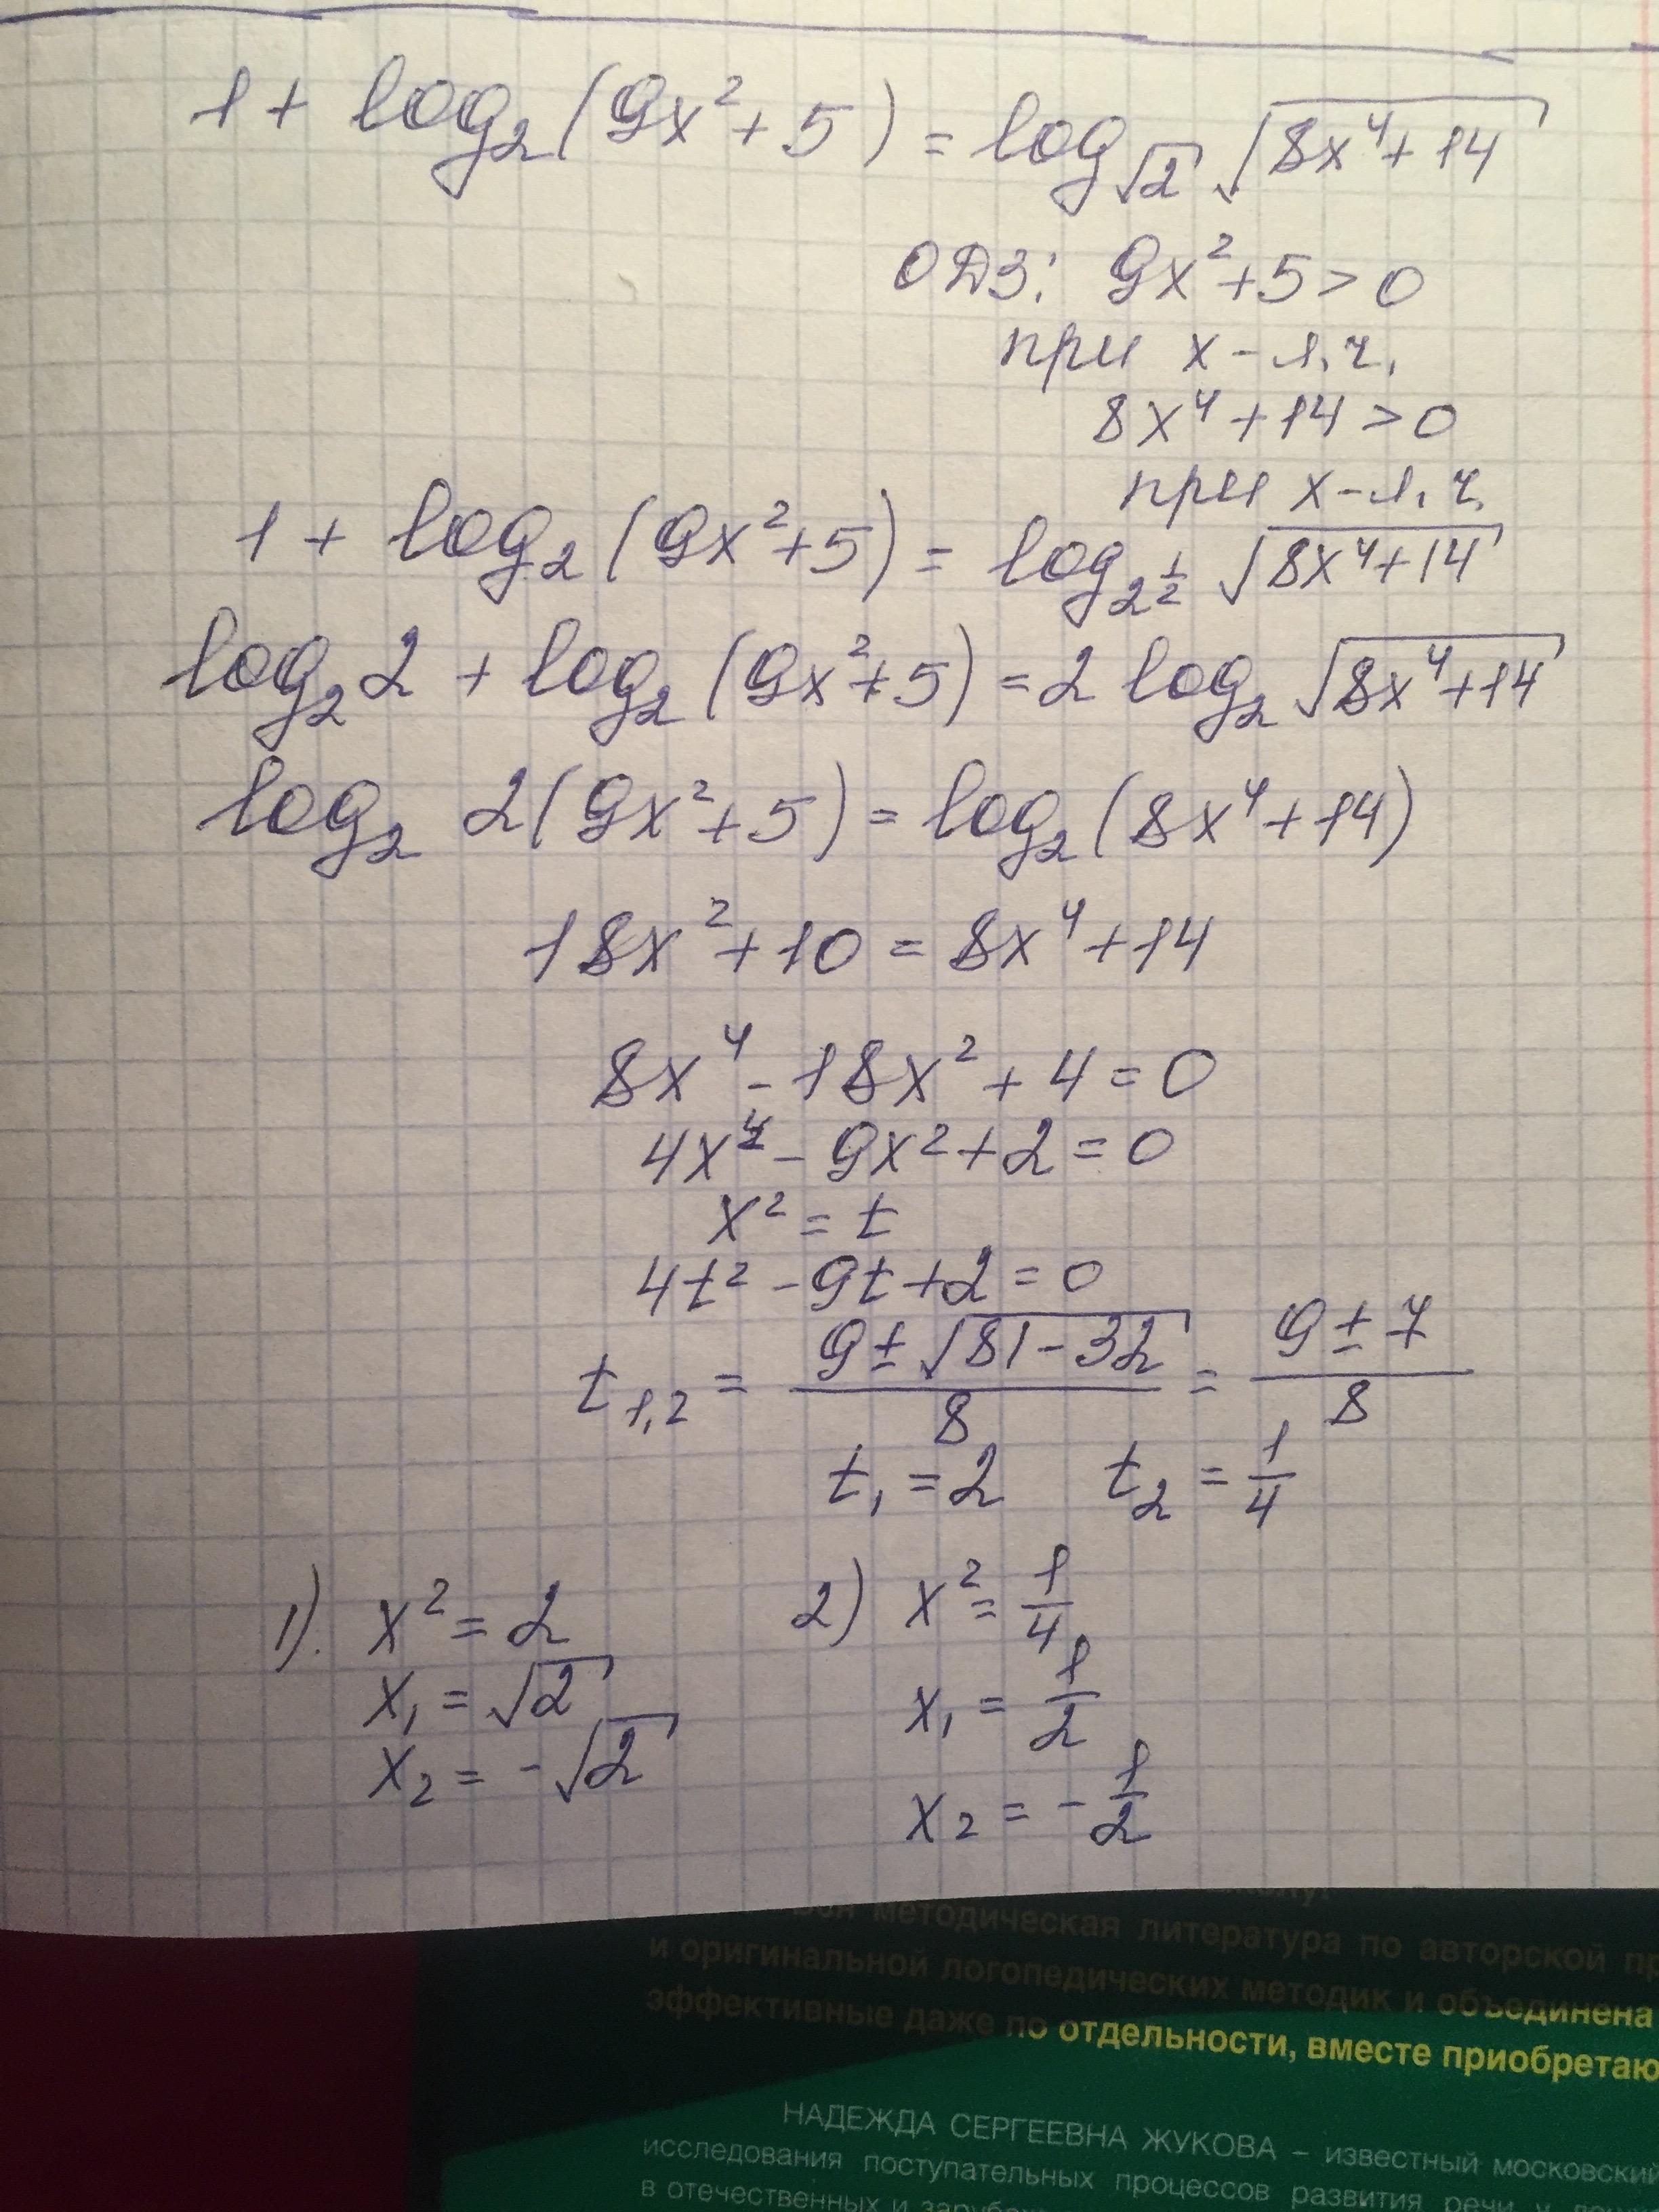 1 + log₂(9x² + 5) = log_√2 √(8x⁴ + 14)
ОДЗ: 9x² + 5 > 0
при x - л.ч.
8x⁴ + 14 > 0
при x - л.ч.
1 + log₂(9x² + 5) = log_2^(1/2) √(8x⁴ + 14)
log₂ 2 + log₂(9x² + 5) = 2 log₂ √(8x⁴ + 14)
log₂ 2(9x² + 5) = log₂(8x⁴ + 14)
18x² + 10 = 8x⁴ + 14
8x⁴ - 18x² + 4 = 0
4x⁴ - 9x² + 2 = 0
x² = t
4t² - 9t + 2 = 0
t₁,₂ = (9 ± √(81 - 32))/8 = (9 ± 7)/8
t₁ = 2 t₂ = 1/4
1). x² = 2
x₁ = √2
x₂ = -√2
2) x² = 1/4
x₁ = 1/2
x₂ = -1/2
методическая литература по авторской
и оригинальной логопедических методик и объединена
эффективные даже по отдельности, вместе приобретаю
НАДЕЖДА СЕРГЕЕВНА ЖУКОВА – известный московский
исследования поступательных процессов развития речи
в отечественных и